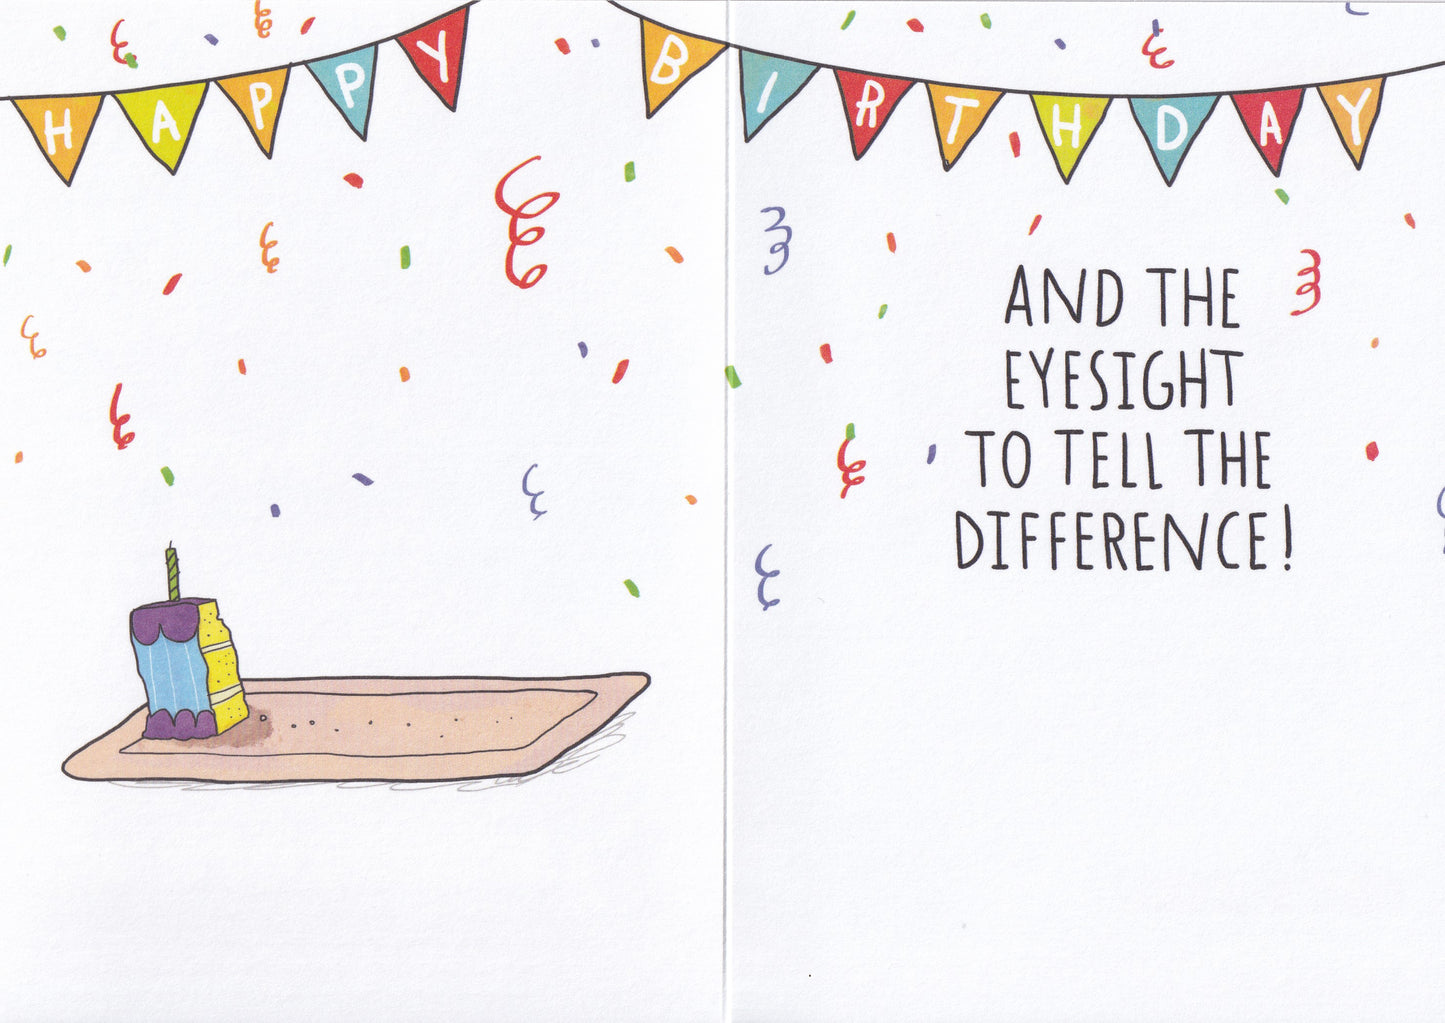 HAPPY BIRTHDAY
AND THE
EYESIGHT
TO TELL THE
DIFFERENCE!